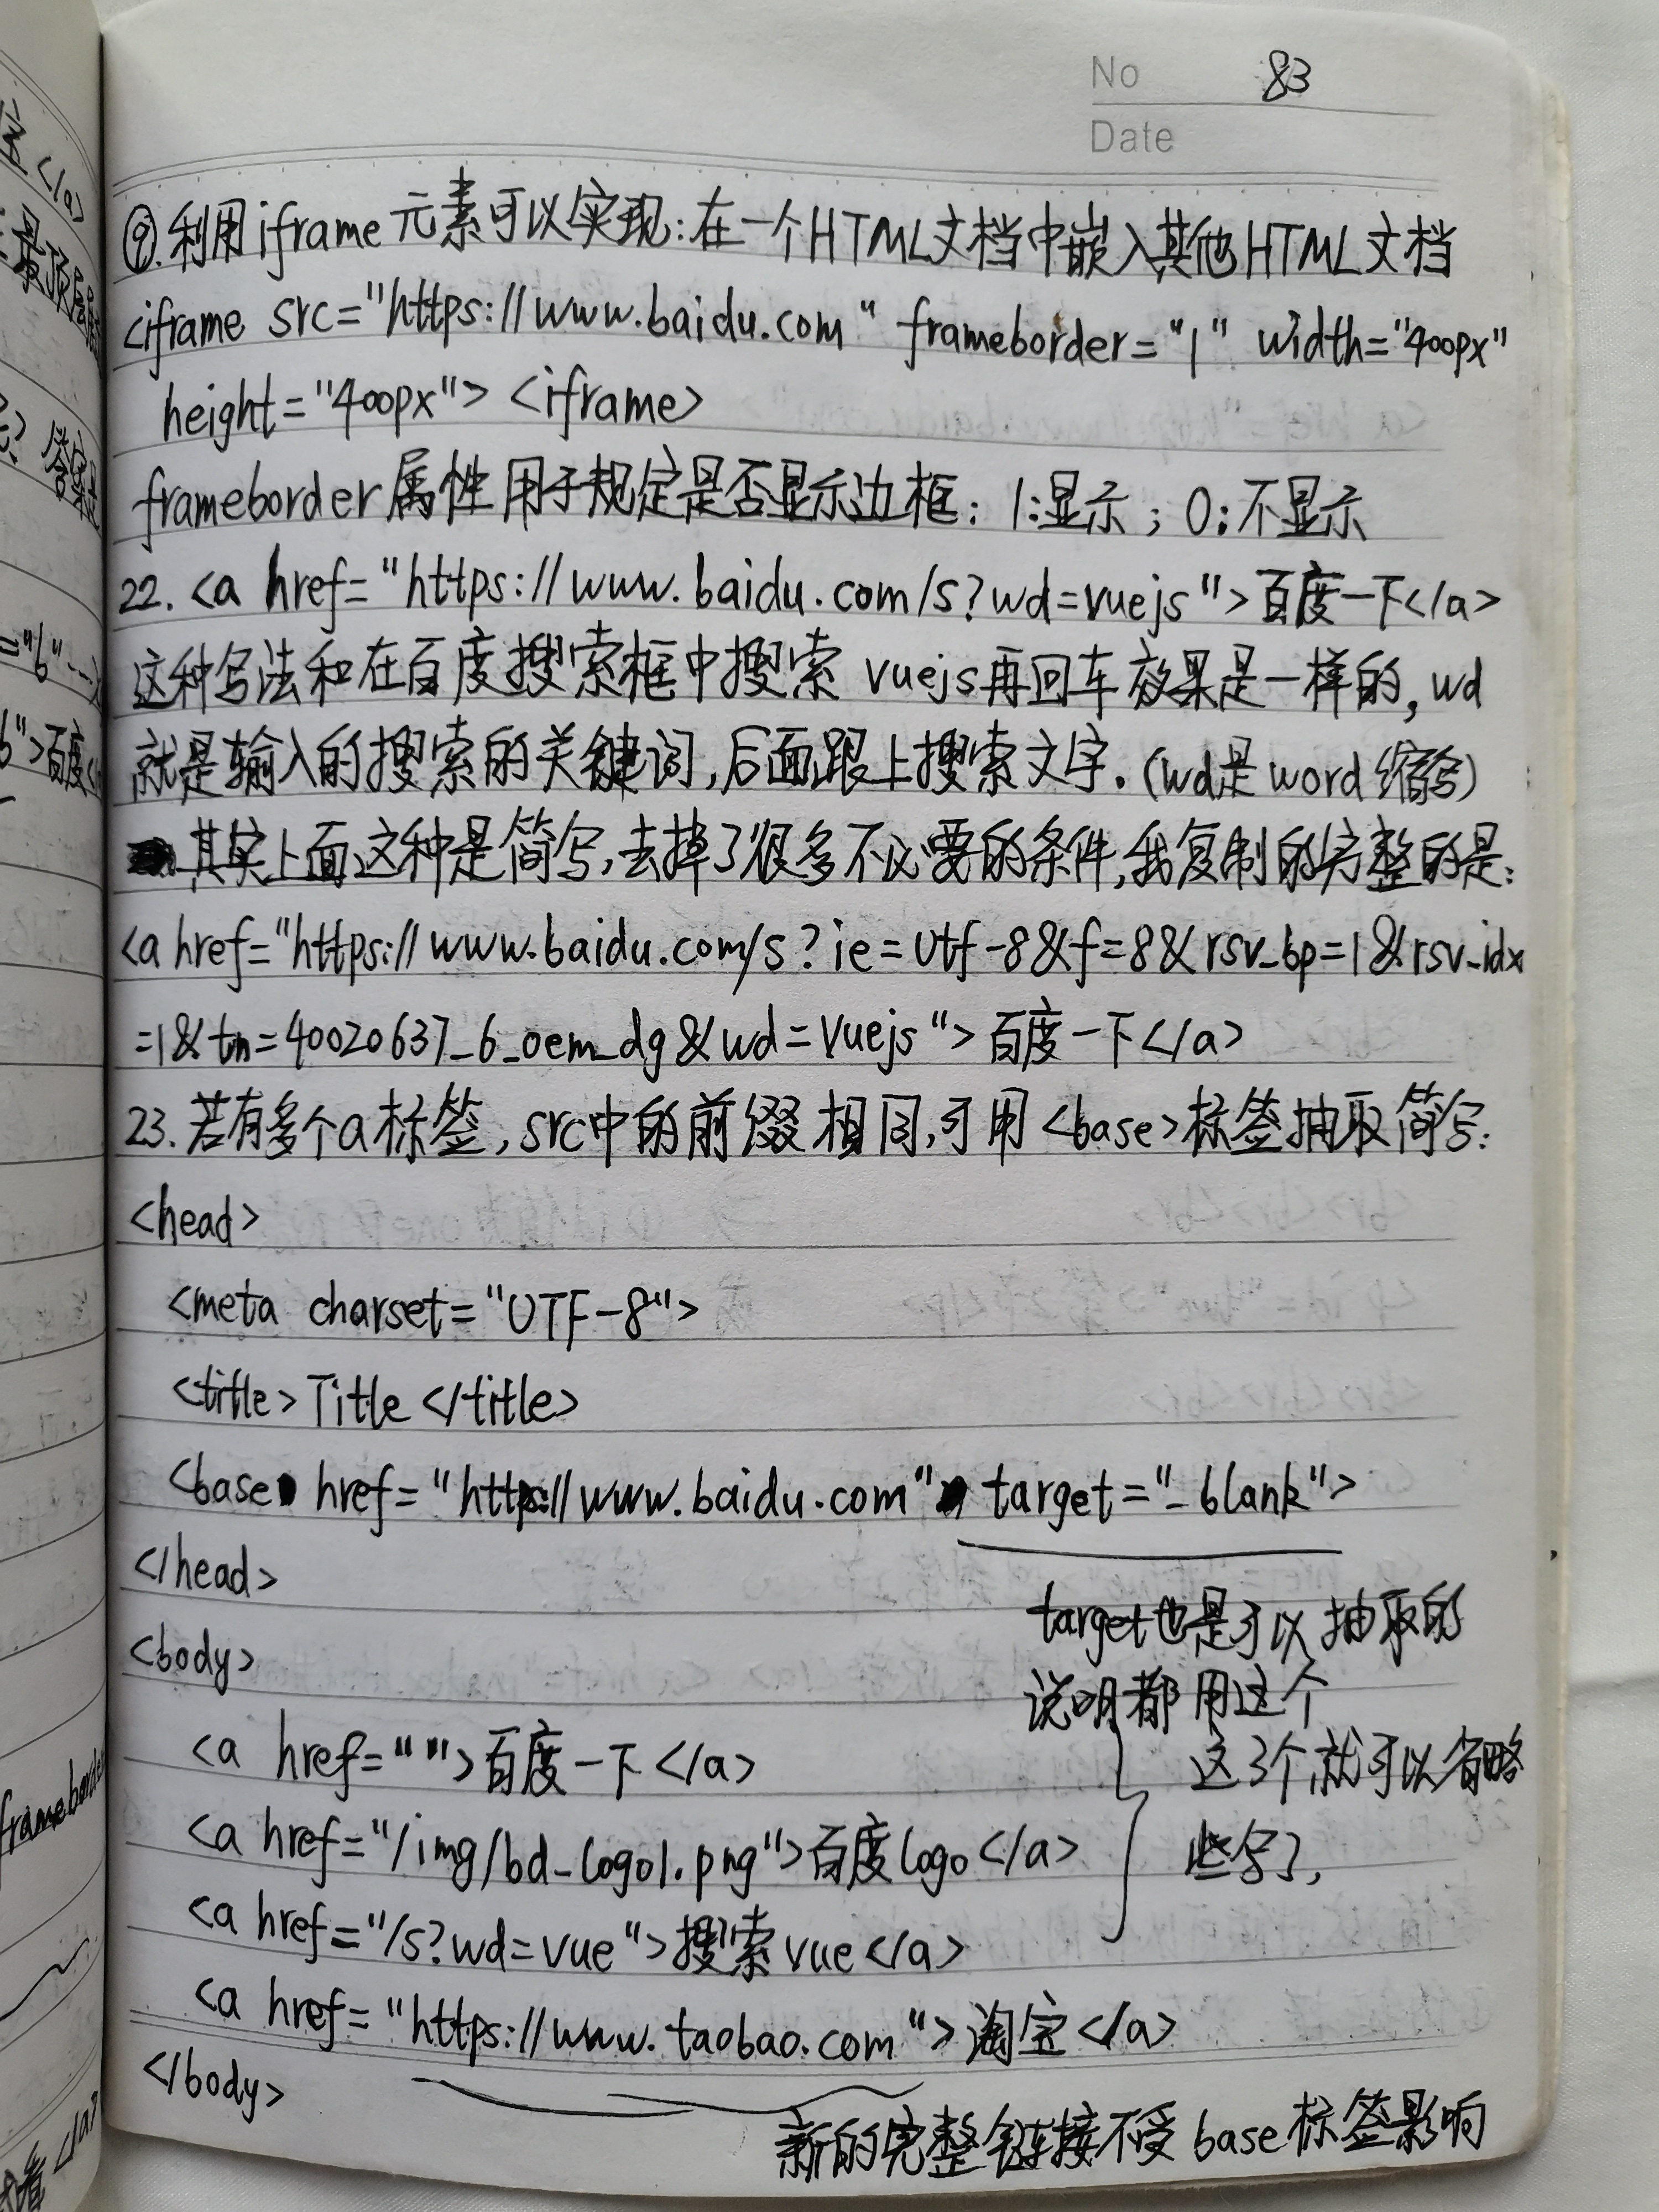 No 83
Date
⑨.利用iframe元素可以实现:在一个HTML文档中嵌入其他HTML文档
<iframe src="https://www.baidu.com" frameborder="1" width="400px"
height="400px"> <iframe>
frameborder属性用于规定是否显示边框: 1:显示; 0:不显示
22. <a href="https://www.baidu.com/s?wd=vuejs">百度一下</a>
这种写法和在百度搜索框中搜索 vuejs再回车效果是一样的,wd
就是输入的搜索的关键词,后面跟上搜索文字.(wd是word缩写)
其实上面这种是简写,去掉了很多不必要的条件,我复制的完整的是:
<a href="https://www.baidu.com/s?ie=utf-8&f=8&rsv_bp=1&rsv_idx
=1&tn=40020637_6_oem_dg&wd=vuejs">百度一下</a>
23.若有多个a标签,src中的前缀相同,可用<base>标签抽取简写:
<head>
<meta charset="UTF-8">
<title>Title</title>
<base href="http://www.baidu.com" target="_blank">
</head>
target也是可以抽取的
<body>
说明都用这个
<a href="">百度一下</a>
这3个就可以省略
<a href="/img/bd_logo1.png">百度logo</a>
些写了,
<a href="/s?wd=vue">搜索vue</a>
<a href="https://www.taobao.com">淘宝</a>
</body>
新的完整链接不受base标签影响
最顶层
答案
="6"
6">百度
frameborder
</a>